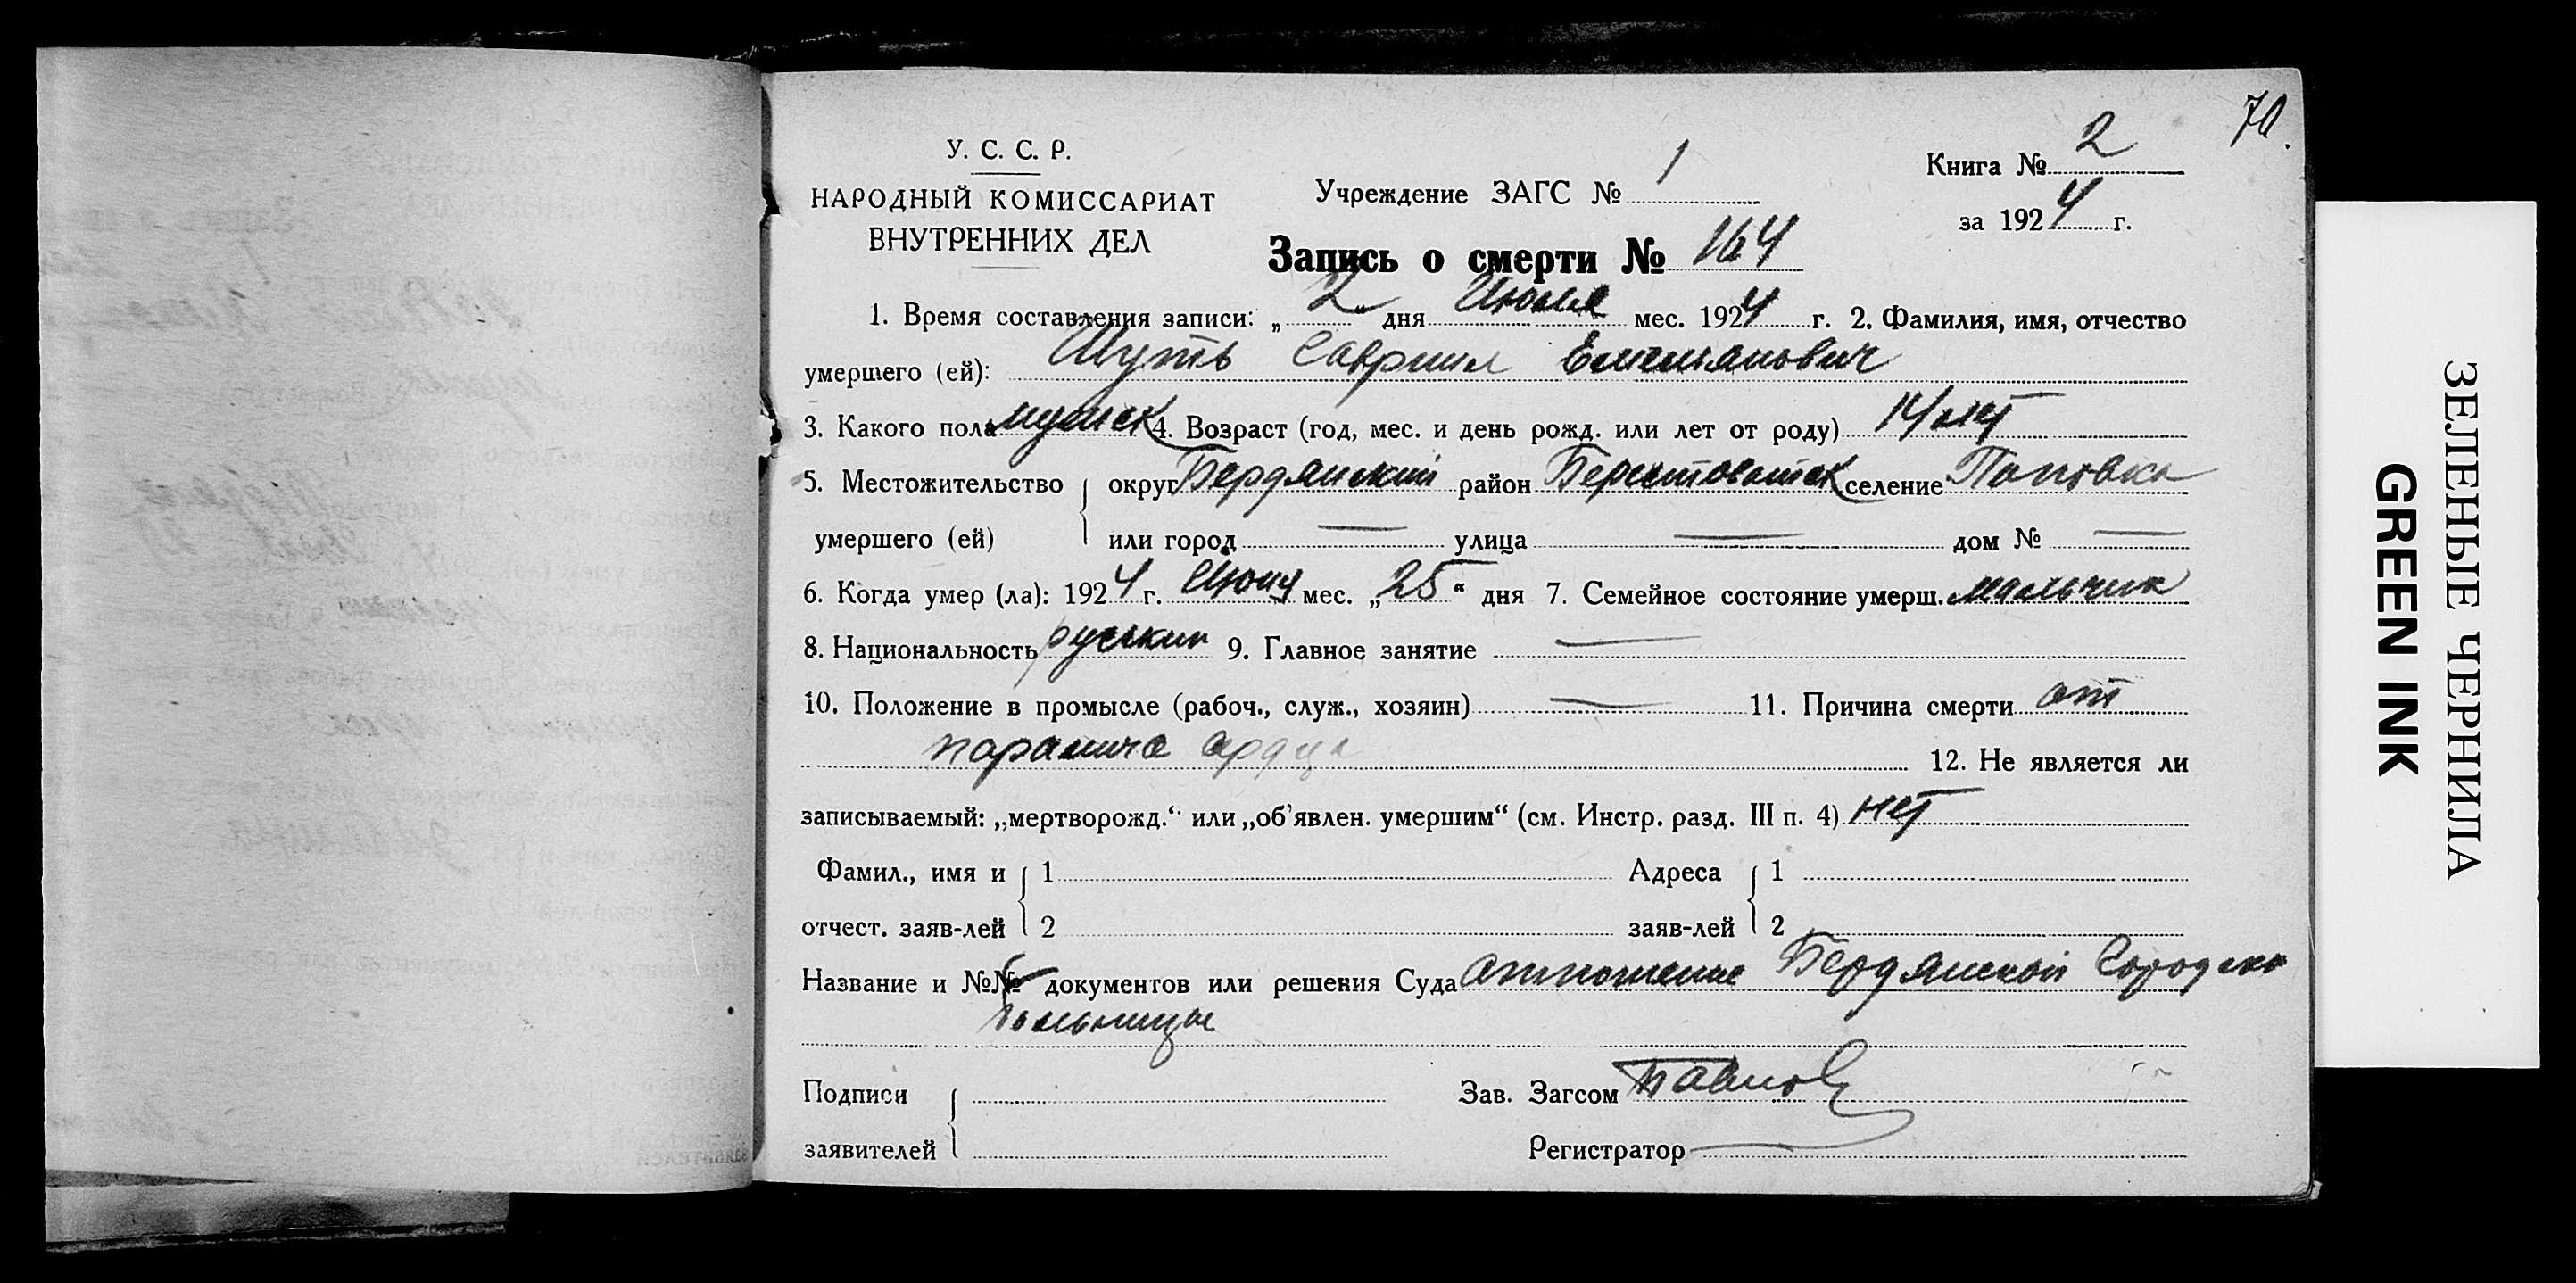 70.
У. С. С. Р.
НАРОДНЫЙ КОМИССАРИАТ
ВНУТРЕННИХ ДЕЛ
Учреждение ЗАГС № 1
Книга № 2
за 1924 г.
Запись о смерти № 164
1. Время составления записи: „2“ дня Июля мес. 1924 г. 2. Фамилия, имя, отчество
умершего (ей): Шуть Гавриил Емельянович
3. Какого пола мужск 4. Возраст (год, мес. и день рожд. или лет от роду) 14 лет
5. Местожительство округ Бердянский район Берестоватск селение Поповка
умершего (ей) или город — улица — дом № —
6. Когда умер (ла): 1924 г. Июня мес. „25“ дня 7. Семейное состояние умерш. мальчик
8. Национальность руский 9. Главное занятие —
10. Положение в промысле (рабоч., служ., хозяин) — 11. Причина смерти от
паралича сердца 12. Не является ли
записываемый: „мертворожд.“ или „об'явлен. умершим“ (см. Инстр. разд. III п. 4) нет
Фамил., имя и 1 Адреса 1
отчест. заяв-лей 2 заяв-лей 2
Название и №№ документов или решения Суда отношение Бердянской Городско
больницы
Подписи Зав. Загсом Павлов
заявителей Регистратор
ЗЕЛЕНЫЕ ЧЕРНИЛА
GREEN INK